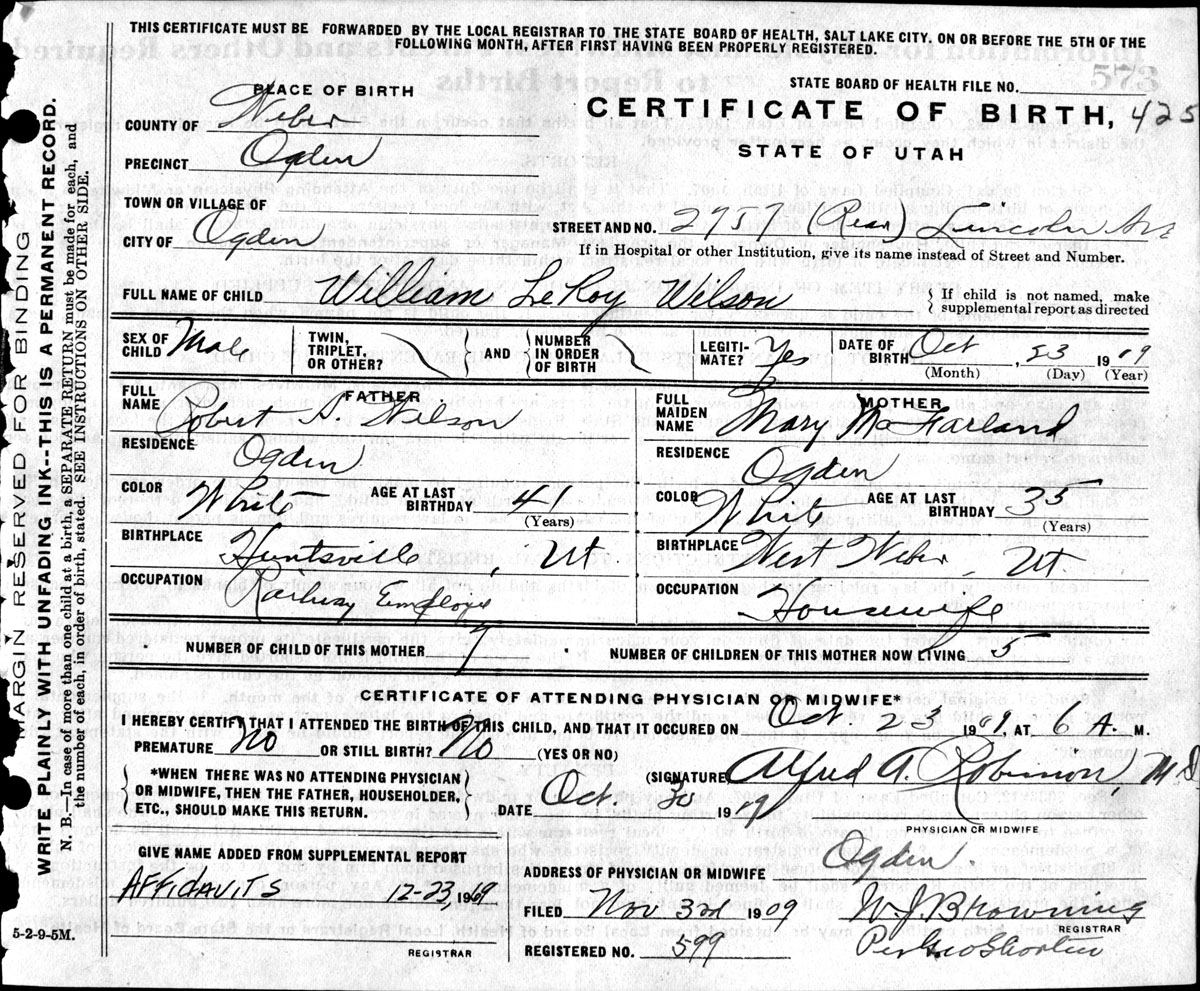 THIS CERTIFICATE MUST BE FORWARDED BY THE LOCAL REGISTRAR TO THE STATE BOARD OF HEALTH, SALT LAKE CITY, ON OR BEFORE THE 5TH OF THE
FOLLOWING MONTH, AFTER FIRST HAVING BEEN PROPERLY REGISTERED.
MARGIN RESERVED FOR BINDING
WRITE PLAINLY WITH UNFADING INK--THIS IS A PERMANENT RECORD.
N. B.—In case of more than one child at a birth, a SEPARATE RETURN must be made for each, and
the number of each, in order of birth, stated. SEE INSTRUCTIONS ON OTHER SIDE.
PLACE OF BIRTH
STATE BOARD OF HEALTH FILE NO.
CERTIFICATE OF BIRTH, 425
STATE OF UTAH
COUNTY OF Weber
PRECINCT Ogden
TOWN OR VILLAGE OF
CITY OF Ogden
STREET AND NO. 2757 (Rear) Lincoln Ave
If in a Hospital or other Institution, give its name instead of Street and Number.
FULL NAME OF CHILD William LeRoy Wilson
If child is not named, make
supplemental report as directed
SEX OF CHILD Male
TWIN, TRIPLET, OR OTHER?
AND
NUMBER IN ORDER OF BIRTH
LEGITI-MATE? Yes
DATE OF BIRTH Oct , 23 1909
(Month) (Day) (Year)
FATHER
FULL NAME Robert S. Wilson
RESIDENCE Ogden
COLOR White
AGE AT LAST BIRTHDAY 41
(Years)
BIRTHPLACE Huntsville, Ut
OCCUPATION Railway Employe
MOTHER
FULL MAIDEN NAME Mary McFarland
RESIDENCE Ogden
COLOR White
AGE AT LAST BIRTHDAY 35
(Years)
BIRTHPLACE West Weber, Ut.
OCCUPATION Housewife
NUMBER OF CHILD OF THIS MOTHER 7
NUMBER OF CHILDREN OF THIS MOTHER NOW LIVING 5
CERTIFICATE OF ATTENDING PHYSICIAN OR MIDWIFE*
I HEREBY CERTIFY THAT I ATTENDED THE BIRTH OF THIS CHILD, AND THAT IT OCCURED ON Oct. 23 1909, AT 6 A. M.
PREMATURE No OR STILL BIRTH? No (YES OR NO)
*WHEN THERE WAS NO ATTENDING PHYSICIAN
OR MIDWIFE, THEN THE FATHER, HOUSEHOLDER,
ETC., SHOULD MAKE THIS RETURN.
(SIGNATURE Alfred A. Robinson, M.D.
PHYSICIAN OR MIDWIFE
DATE Oct. 30 1909
GIVE NAME ADDED FROM SUPPLEMENTAL REPORT
AFFIDAVITS 12-23, 1909
REGISTRAR
ADDRESS OF PHYSICIAN OR MIDWIFE Ogden.
FILED Nov 3rd 1909 W. J. Browning
REGISTRAR
REGISTERED NO. 599
5-2-9-5M.